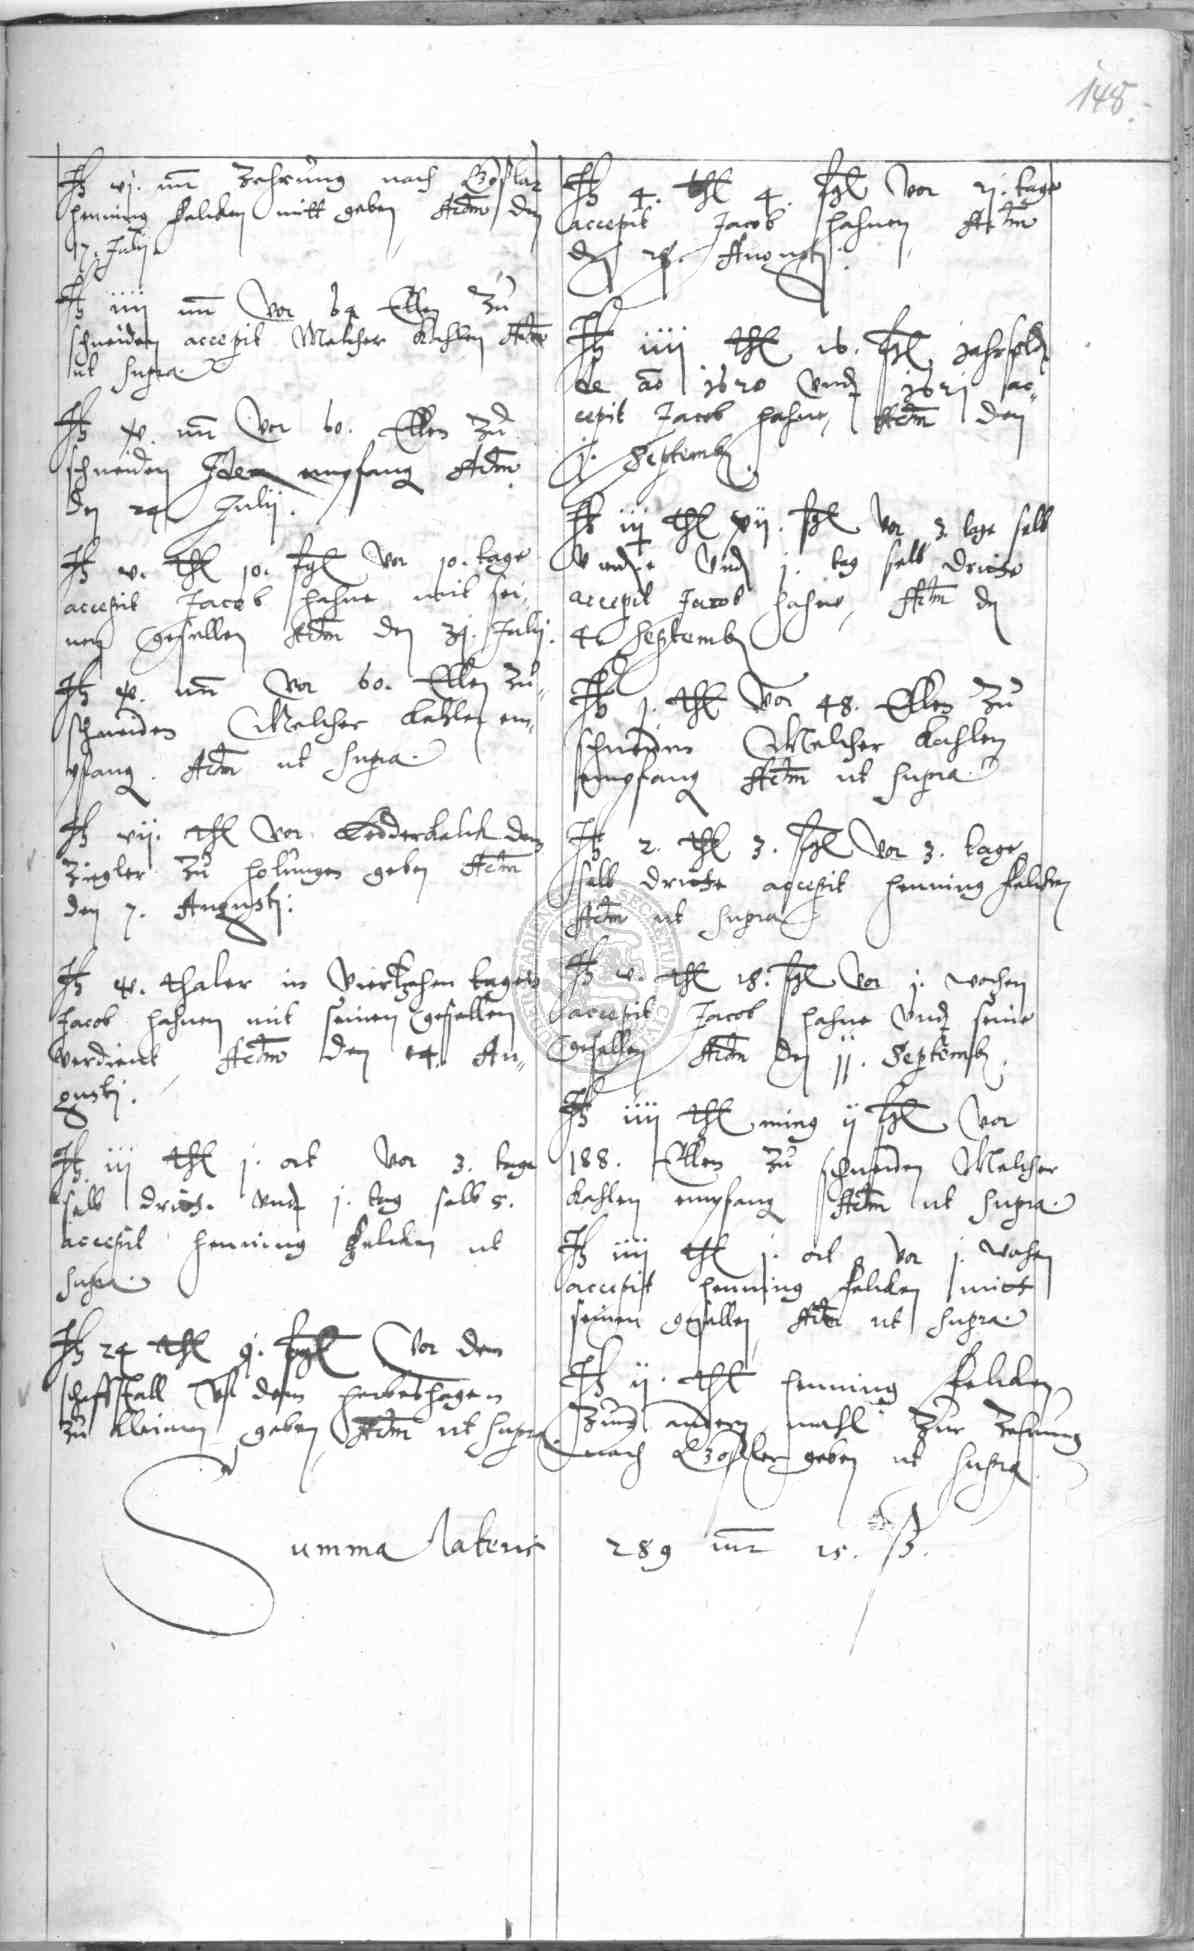 148.
It vj. mr Zehrung nach Goslar
Henning Felcken mitt geben Actm den
17. Julij
It iiij mr vor 64 Ellen Zu
schneiden accepit Melcher Kahlen Actm
ut supra
It x. mr vor 60. Ellen Zu
schneiden Idem empfang Actm
den 24 Julij.
It v. thl 10. fgl vor 10. tage
accepit Jacob Hahne mit sei-
nen gesellen Actm den 31. Julij.
It x. mr vor 60. Ellen Zu-
schneiden Melcher Kahlen em-
pfang. Actm ut supra.
It vij. thl vor Ledderkalck dem
Ziegler Zu holungen geben Actm
den 7. Augusti.
It x. thaler in Viertzehen tagen
Jacob Hahnen mit seinen gesellen
verdient Actm den 14. Au-
gusti.
It iij thl j. ort vor 3. tage
selb dritte. und j. tag selb 5.
accepit Henning Felcken ut
supra.
It 24 thl 9. fgl vor den
schaffstall uf dem
Zu kleimen geben Actm ut supra
It 4. thl 4. fgl vor 11. tage
accepit Jacob Hahnen Actm
den 28. Augusti.
It iiij thl 16. fgl Jahrsold
de ao 1620 und 1621 ac-
cepit Jacob Hahne, Actm den
1. Septemb.
It iij thl xij. fgl vor 3. tage selb
und j. tag selb dritte
accepit Jacob Hahne, Actm den
4 Septemb
It j. thl vor 48. Ellen Zu
schneiden Melcher Kahlen
empfang Actm ut supra.
It 2. thl 3. fgl vor 3. tage
selb dritte accepit Henning Felcken
Actm ut supra
It v. thl 18. fgl vor j. wochen
accepit Jacob Hahne und seine
gesellen Actm den 11. Septemb.
It iiij thl ming ij fgl vor
188. Ellen Zu schneiden Melcher
Kahlen empfang Actm ut supra.
It iiij thl j. ort vor j. wochen
accepit Henning Felcken mitt
seinen gesellen Actm ut supra.
It ij. thl Henning Felcken
Zum andern mahl Zur Zehrung
nach Goslar geben ut supra
Summa lateris 289 mr 15. ß.